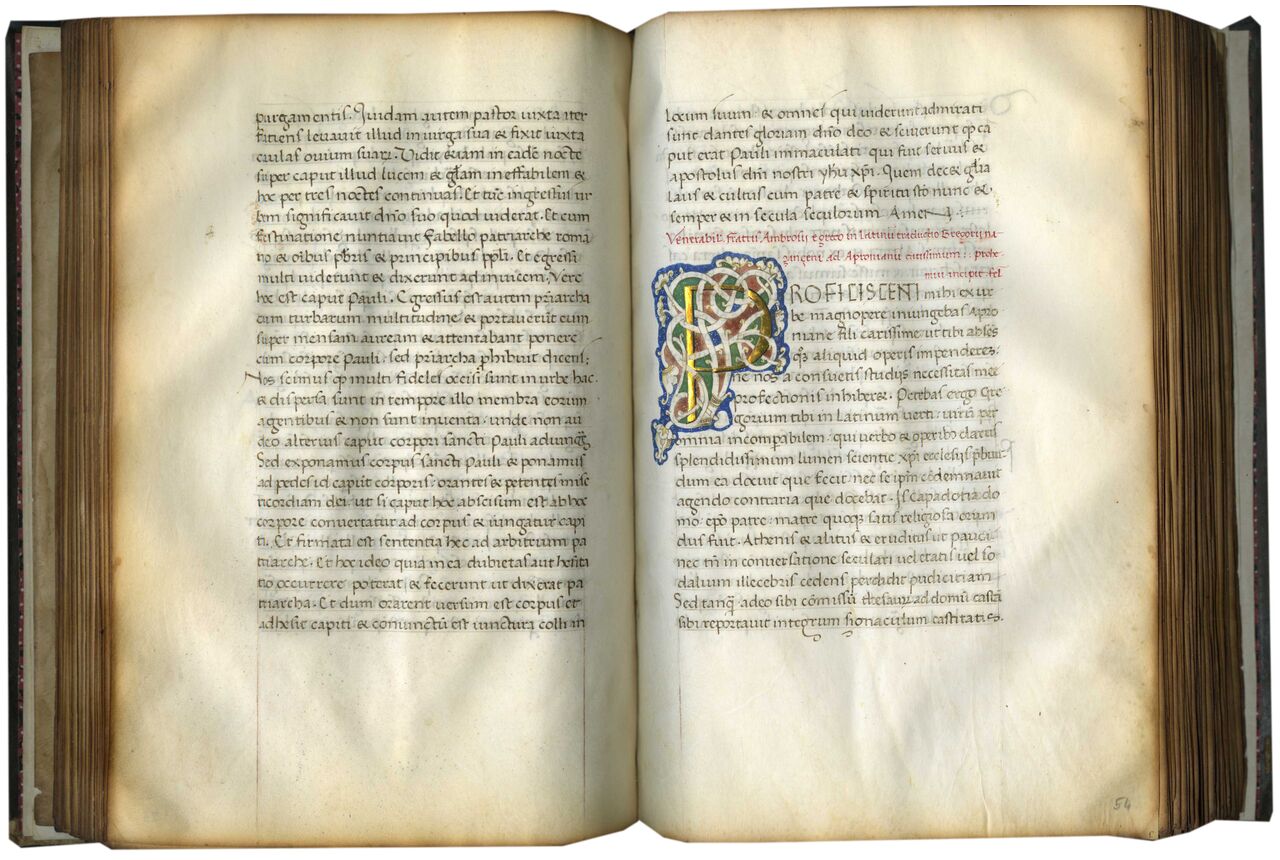 purgamentis. Quidam autem pastor iuxta iter
fatiens leuauit illud in uirga sua & fixit iuxta
caulas ouium suaꝝ. Vidit &iam in cadē nocte
super caput illud lucem & gl̄am ineffabilem &
hoc per tres noctes continuas. Et tūc ingressus ur
bem significauit dn̄o suo quod uiderat. Et cum
festinatione nuntiauit fabello patriarche roma
no & oībus p̄bris & principibus ppl̄i. Et egressi
multi uiderunt & dixerunt ad inuicem. Vere
hoc est caput Pauli. Egressus est autem pr̄iarcha
cum turbarum multitudine & portauerūt eum
super mensam auream & attentabant ponere
cum corpore Pauli. sed pr̄iarcha ꝓhibuit dicens;
Nos scimus qꝫ multi fideles occisi sunt in urbe hac.
& dispersa sunt in tempore illo membra eorum
a gentibus & non sunt inuenta. unde non au
deo alterius caput corpori sancti Pauli adiungeꝝ
Sed exponamus corpus sancti Pauli & ponamus
ad pedes id caput corporis. orantes & petentes mise
ricordiam dei. ut si caput hoc abscisum est ab hoc
corpore conuertatur ad corpus & iungatur capi
ti. Et firmata est sententia hec ad arbitrium pa
triarche. Et hoc ideo quia in ea dubietas aut hesita
tio occurrere poterat & fecerunt ut dixerat pa
triarcha. Et dum orarent uersum est corpus et
adhesit capiti & coniunctū est iunctura colli in
locum suum & omnes qui uiderunt admirati
sunt dantes gloriam dn̄o deo & scierunt qꝫ ca
put erat Pauli immaculati qui fuit seruus &
apostolus dn̄i nostri yh̄u xp̄i. Quem dec& gl̄ia
laus & cultus cum patre & spiritu sc̄to nunc &
semper & in secula seculorum Amen.
Venerabil̄ fratris Ambrosii e greco in latinū traductio Gregorii na
zanzeni ad Apronianū carissimum: prohe
miū incipit fel̄
PROFICISCENTI mihi ex ur
be magnopere iniungebas Apro
niane fili carissime. ut tibi abſēs
qꝫ aliquid operis impenderes.
ne nos a consuetis studijs necessitas
profectionis inhiber&. Petebas ergo Gre
gorium tibi in latinum uerti. uirū per
omnia incomꝑabilem. qui uerbo & operibꝫ clarus
splendidissimum lumen scientie xp̄i ecclesijs p̄buit
dum ea docuit que fecit. nec se ip̄m cōdemnauit
agendo contraria que docebat. Is Capadotia do
mo. ep̄o patre. matre quoqꝫ satis religiosa oriun
dus fuit. Athenis & alitus & eruditus ut pauci
nec tn̄ in conuersatione seculari uel etatis uel so
dalium illecebris cedens perdidit pudicitiam
Sed tanqꝫ a deo sibi cōmissū thesauꝝ ad domū castā
sibi reportauit integrum signaculum castitatis.
54